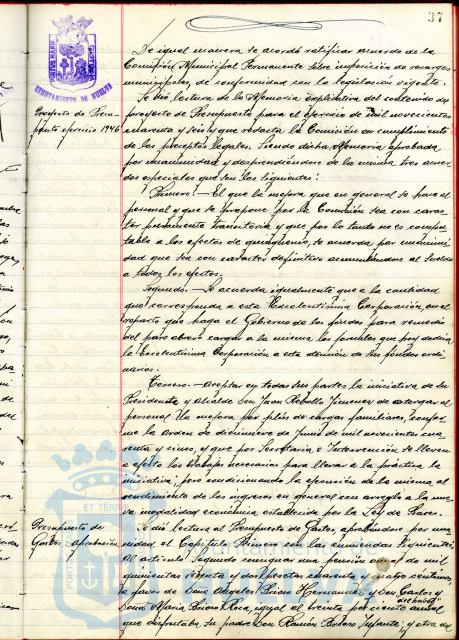 37
De igual manera se acordó ratificar acuerdo de la
Comisión Municipal Permanente sobre imposición de recargos
municipales, de conformidad con la legislación vigente.
AYUNTAMIENTO DE HUELVA
Proyecto de Presu-
puesto ejercicio 1946
Se dió lectura de la Memoria explicativa del contenido del
proyecto de Presupuesto para el ejercicio de mil novecientos
cuarenta y seis y que redacta la Comisión en cumplimiento
de los preceptos legales. Siendo dicha Memoria aprobada
por unanimidad y desprendiéndose de la misma tres acuer-
dos especiales que son los siguientes:
Primero.- El que la mejora que en general se hace al
personal y que se propone por la Comisión sea con carác-
ter puramente transitorio y que por lo tanto no es compu-
table a los efectos de quinquenio, se acuerda por unanimi-
dad que sea con carácter definitivo acumulándose al sueldo
a todos los efectos.
Segundo.- Se acuerda igualmente que a la cantidad
que corresponda a esta Excelentísima Corporación, en el
reparto que haga el Gobierno de los fondos para remedio
del paro obrero cargar a la misma los jornales que hoy dedica
la Excelentísima Corporación a esta atención de sus fondos ordi-
narios.
Tercero.- Aceptar en todas sus partes la iniciativa de su
Presidente y Alcalde Don Juan Rebollo Jimenez de otorgar al
personal una mejora por plus de cargas familiares, confor-
me la orden de diecinueve de Junio de mil novecientos cua-
renta y cinco, y que por Secretaría e Intervención se lleven
a efecto los trabajos necesarios para llevar a la práctica la
iniciativa, pero condicionando la ejecución de la misma al
rendimiento de los ingresos en general con arreglo a la nue-
va modalidad económica establecida por la Ley de Bases.
Presupuesto de
Gastos: aprobación
Se dió lectura al Presupuesto de Gastos, aprobándose por una-
nimidad el Capítulo Primero con las enmiendas siguientes:
Al artículo Segundo consignar una pensión anual de mil
quinientas treinta y dos pesetas cuarenta y cuatro céntimos,
a favor de Doña Angeles Rivero Hernandez y Don Carlos y
Doña María Roca, igual al treinta por ciento anual
del haber
que disfrutaba su padre Don Ramón Rivero Infante, y otra de